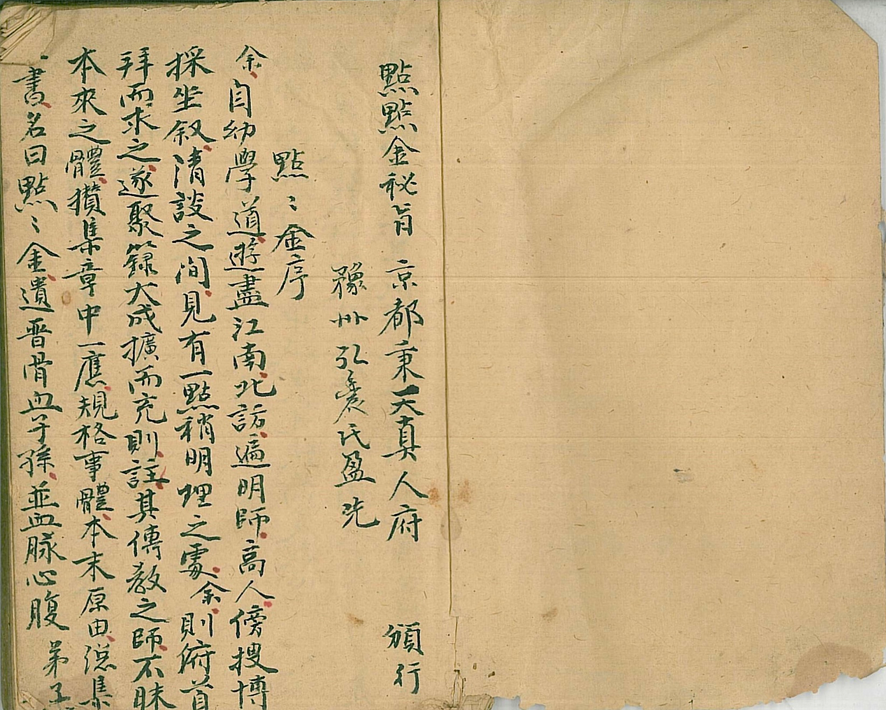 點點金秘旨 京都秉一天真人府 頒行
豫州弘農氏盈洗
點〻金序
余自幼學道遊盡江南北訪遍明師高人傍搜博
採坐叙清談之間見有一點稍明理之處余則俯首
拜而求之遂聚籙大成擴而充則註其傳教之師不昧
本來之體攢集章中一應規格事體本末原由總集
一書名曰點〻金遺晋骨血子孫並血脉心腹 弟子